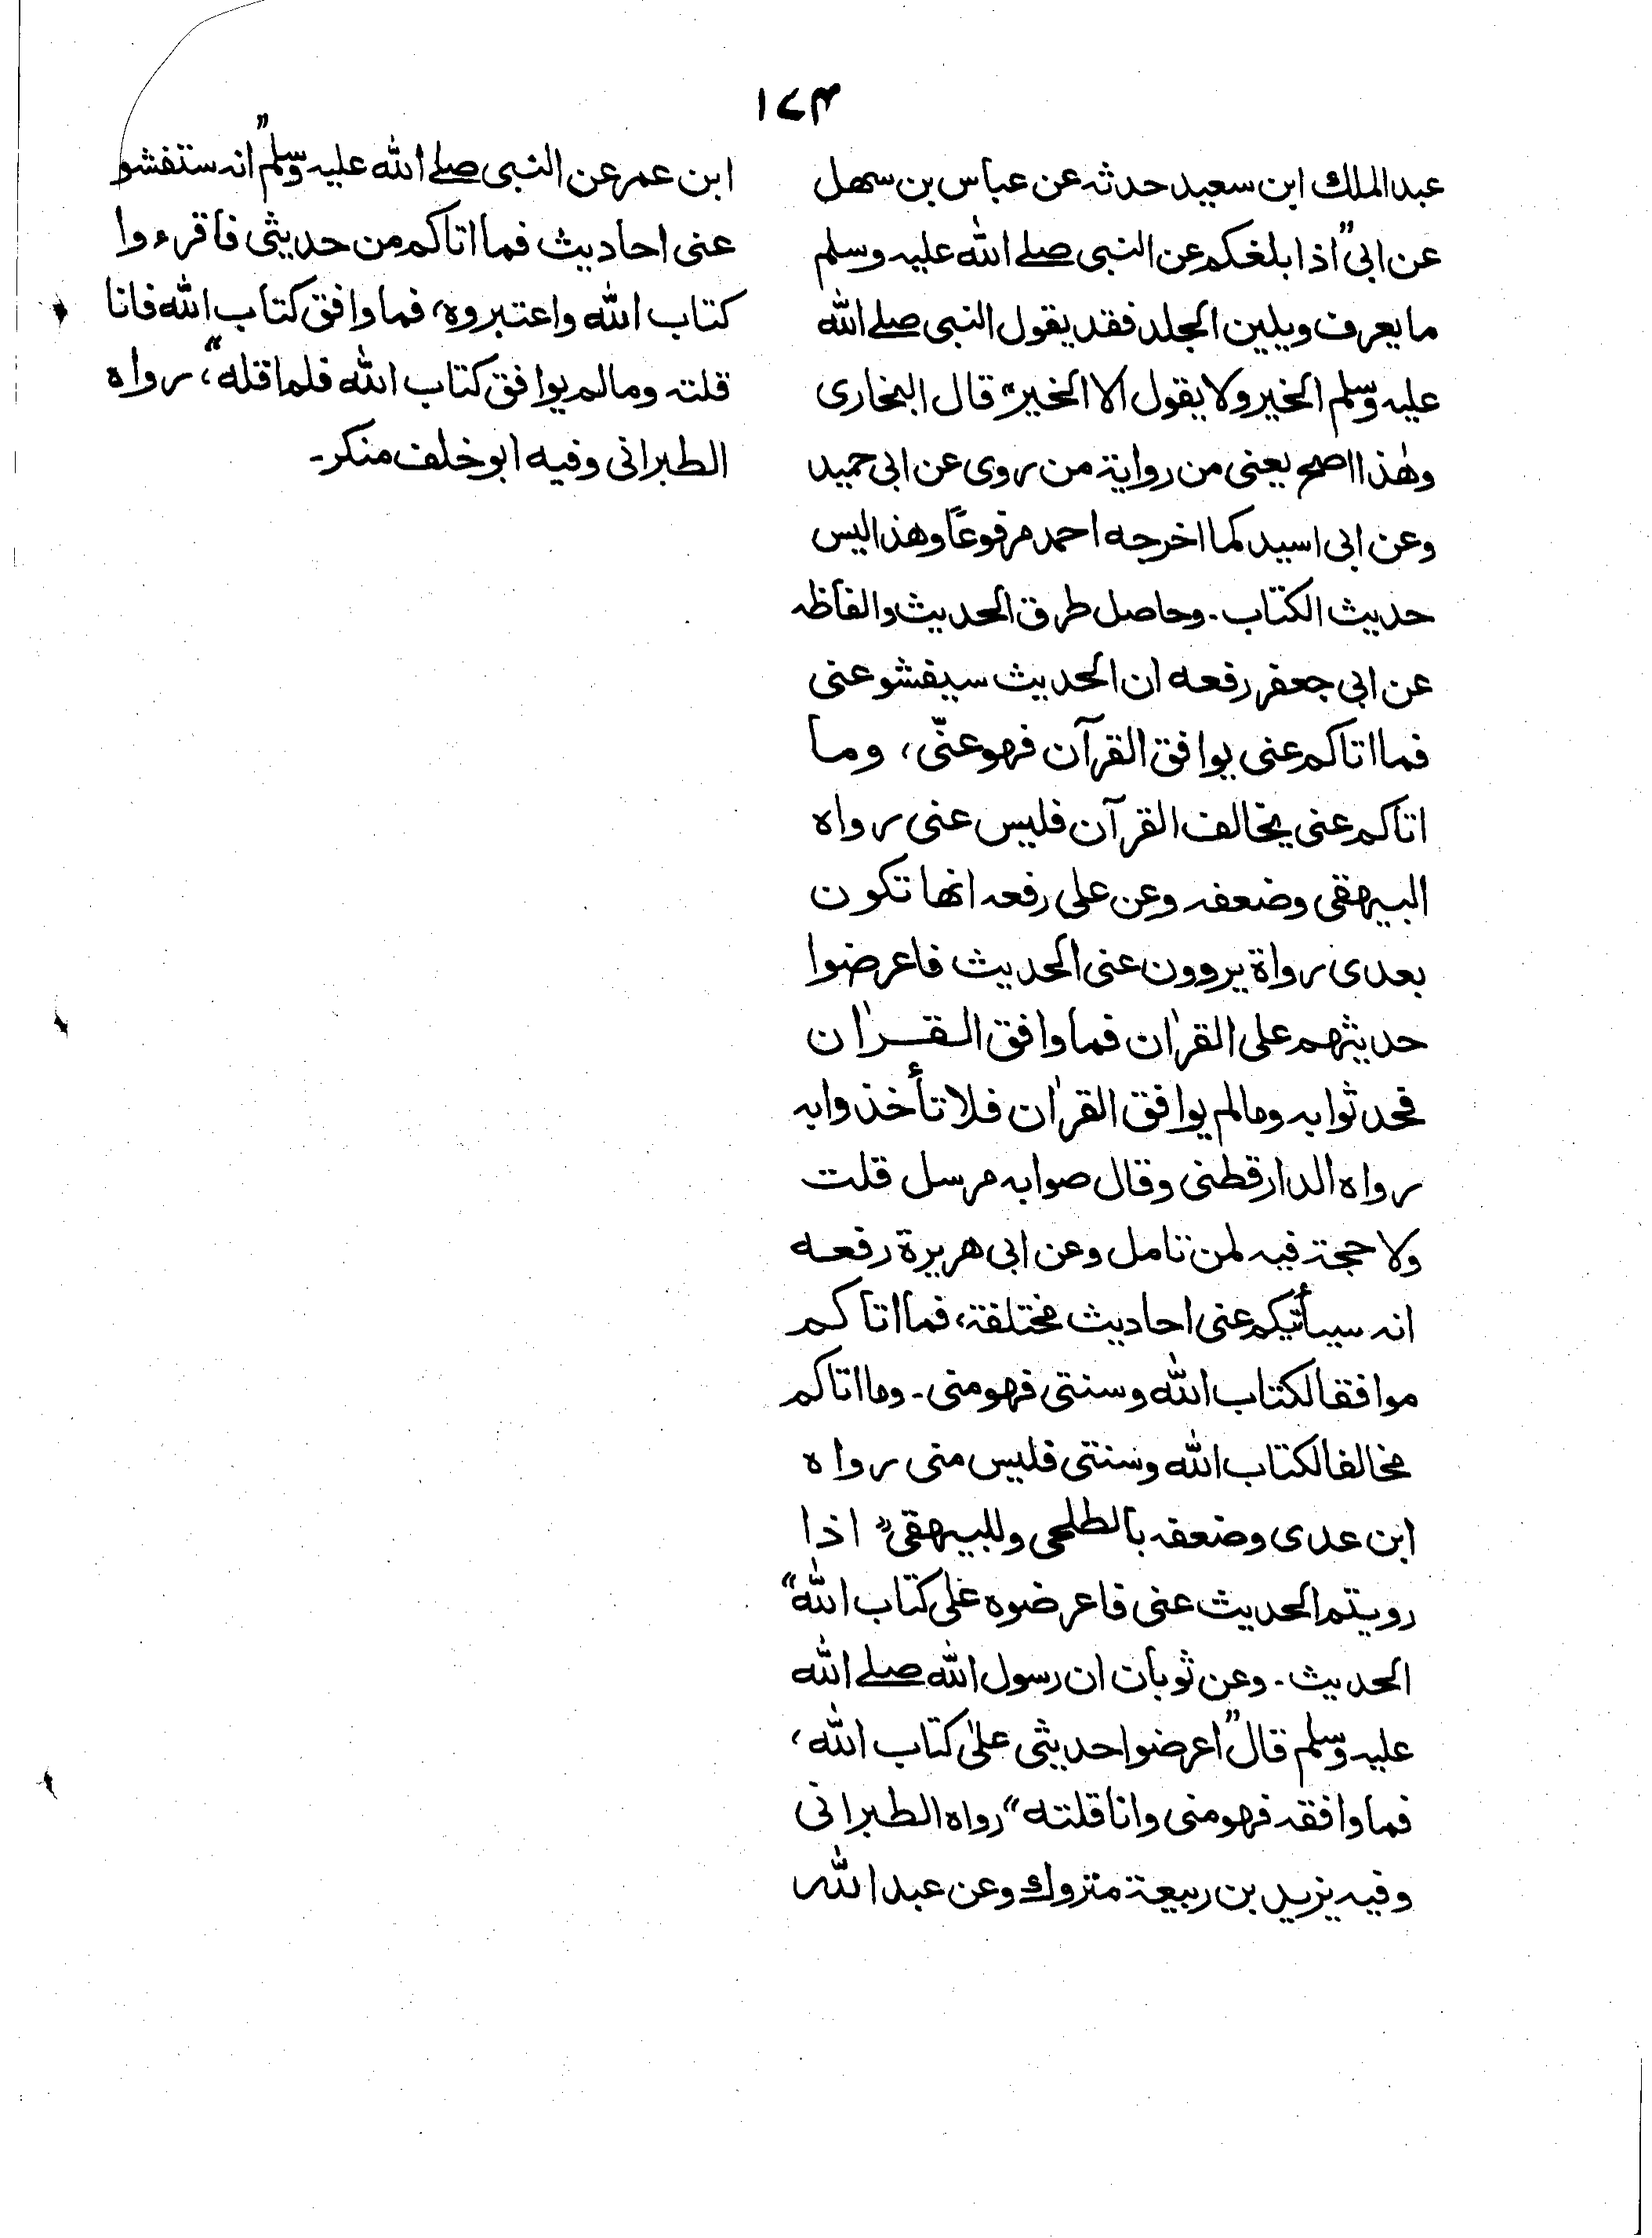 ۱۷۴
عبدالملك ابن سعيد حدثه عن عباس بن سهل
عن ابی "اذا بلغكم عن النبی صلے اللہ علیہ وسلم
مايعرف ويلين الجلد فقد يقول النبی صلے اللہ
علیہ وسلم الخير ولا يقول الا الخير" قال البخاری
وهٰذا اصح يعنی من رواية من روی عن ابی حميد
وعن ابی اسيد كما اخرجه احمد مرفوعاً وهذا ليس
حديث الكتاب۔ وحاصل طرق الحديث والفاظہ
عن ابی جعفر رفعه ان الحديث سيفشو عنی
فما اتاكم عنی يوافق القرآن فهو عنّی، وما
اتاكم عنی يخالف القرآن فليس عنی رواه
البيهقی وضعفہ وعن علی رفعہ انها تكون
بعدی رواة يروون عنی الحديث فاعرضوا
حديثهم علی القرٰان فما وافق القرٰان
فحدثوا بہ ومالم يوافق القرٰان فلا تأخذوا بہ
رواه الدارقطنی وقال صوابہ مرسل قلت
ولا حجة فيہ لمن تامل وعن ابی هريرة رفعه
انہ سيأتيكم عنی احاديث مختلفة، فما اتاكم
موافقا لكتاب اللہ وسنتی فهو منی۔ وما اتاكم
مخالفا لكتاب اللہ وسنتی فليس منی رواه
ابن عدی وضعفہ بالطلحی وللبيهقی" اذا
رويتم الحديث عنی فاعرضوه علی كتاب اللہ"
الحديث۔ وعن ثوبان ان رسول اللہ صلے اللہ
علیہ وسلم قال "اعرضوا حديثی علیٰ كتاب اللہ،
فما وافقہ فهو منی وانا قلته" رواه الطبرانی
وفيہ يزيد بن ربيعة متروك وعن عبد اللہ
ابن عمر عن النبی صلے اللہ علیہ وسلم" انہ ستفشو
عنی احاديث فما اتاكم من حديثی فاقرءوا
كتاب اللہ واعتبروه، فما وافق كتاب اللہ فانا
قلتہ ومالم يوافق كتاب اللہ فلم اقله"، رواه
الطبرانی وفيه ابوخلف منكر۔